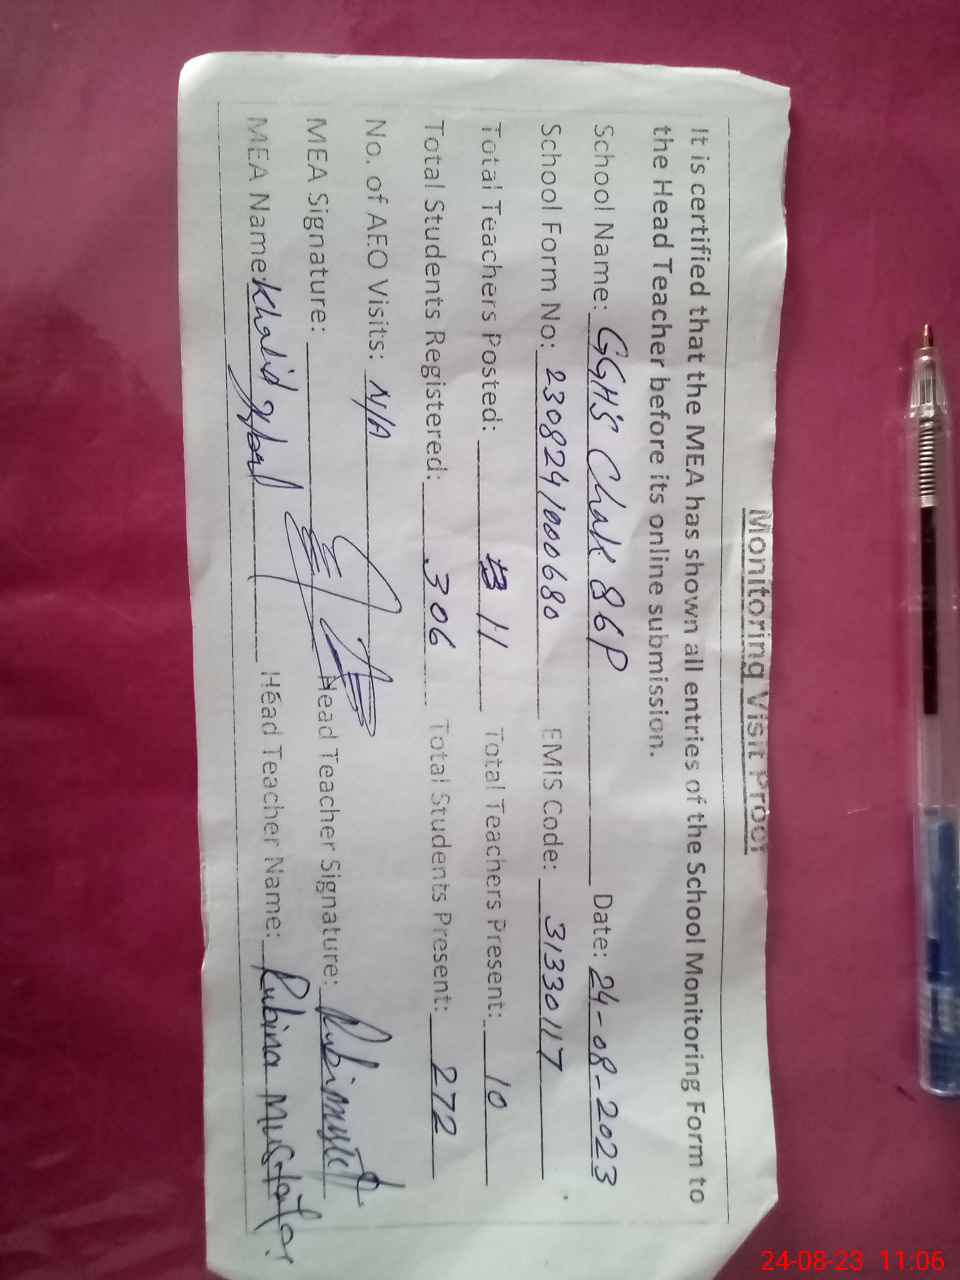 Monitoring Visit Proof
It is certified that the MEA has shown all entries of the School Monitoring Form to
the Head Teacher before its online submission.
School Name: GGHS Chak 86P Date: 24-08-2023
School Form No: 230824100680 EMIS Code: 31330117
Total Teachers Posted: 11 Total Teachers Present: 10
Total Students Registered: 306 Total Students Present: 272
No. of AEO Visits: N/A
MEA Signature: Head Teacher Signature:
MEA Name: Khalid Head Teacher Name: Rubina Mustafa
24-08-23 11:06